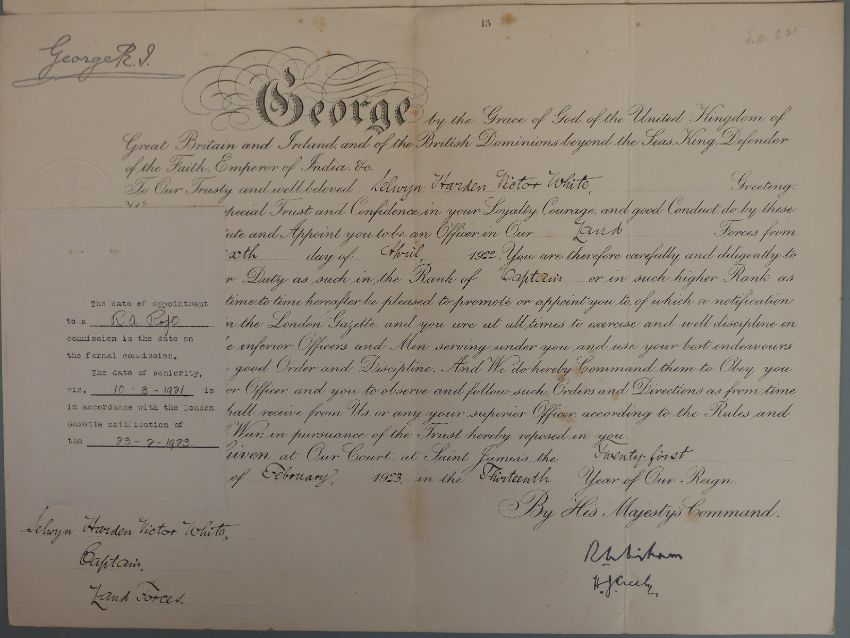 15
S.O. 3.21
George R.I.
George by the Grace of God of the United Kingdom of
Great Britain and Ireland, and of the British Dominions beyond the Seas, King, Defender
of the Faith, Emperor of India, &c.
To Our Trusty and well beloved Selwyn Harden Victor White, Greeting.
pecial Trust and Confidence in your Loyalty, Courage, and good Conduct, do by these
ute and Appoint you to be an Officer in Our Land Forces from
xth day of April, 1922. You are therefore carefully and diligently to
r Duty as such in the Rank of Captain or in such higher Rank as
time to time hereafter be pleased to promote or appoint you to, of which a notification
n the London Gazette, and you are at all times to exercise and well discipline in
e inferior Officers and Men serving under you and use your best endeavours
good Order and Discipline. And We do hereby Command them to Obey you
or Officer and you to observe and follow such Orders and Directions as from time
hall receive from Us, or any your superior Officer, according to the Rules and
War, in pursuance of the Trust hereby reposed in you.
Given at Our Court, at Saint James's, the Twenty-first
of February, 1923, in the Thirteenth Year of Our Reign.
By His Majesty's Command.
The date of appointment
to a
commission is the date on
the formal commission.
The date of seniority,
viz. 10-3-1921 is
in accordance with the London
Gazette notification of
the 23-2-1923
Selwyn Harden Victor White,
Captain,
Land Forces.